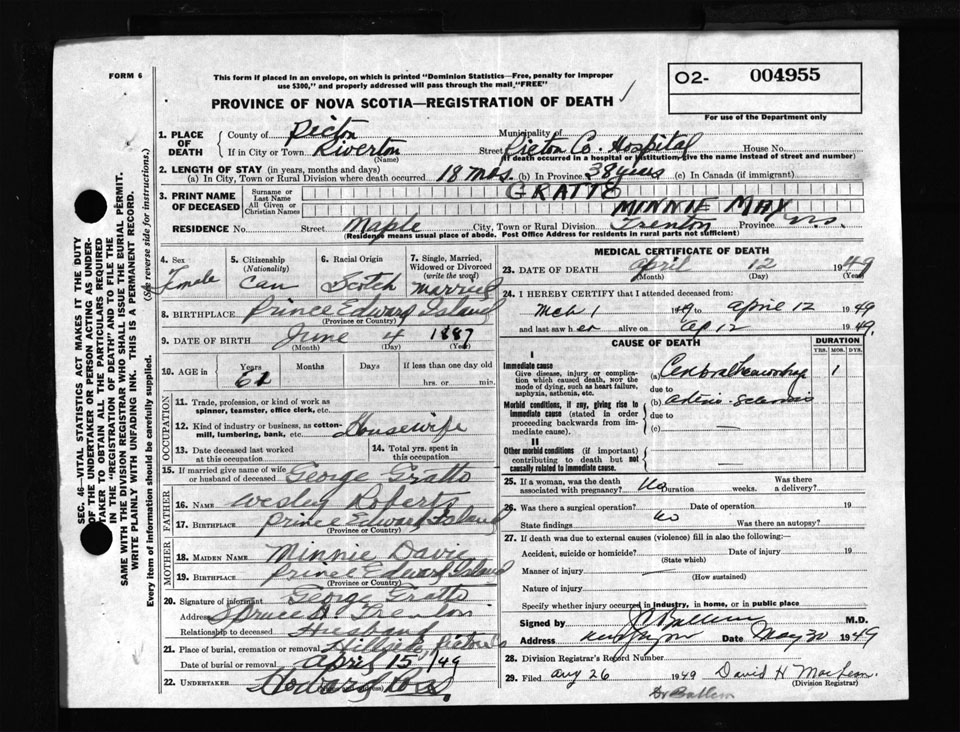 FORM 6
This form if placed in an envelope, on which is printed "Dominion Statistics—Free, penalty for improper
use $300," and properly addressed will pass through the mail, "FREE"
PROVINCE OF NOVA SCOTIA—REGISTRATION OF DEATH
O2- 004955
For use of the Department only
1. PLACE OF DEATH
County of Pictou Municipality of
If in City or Town Riverton Street Pictou Co. Hospital House No.
(Name) (If death occurred in a hospital or institution, give the name instead of street and number)
2. LENGTH OF STAY (in years, months and days)
(a) In City, Town or Rural Division where death occurred 18 mos. (b) In Province 38 years (c) In Canada (if immigrant)
3. PRINT NAME OF DECEASED
Surname or Last Name GRATTO
All Given or Christian Names MINNIE MAY
RESIDENCE No. Street Maple City, Town or Rural Division Trenton Province N.S.
(Residence means usual place of abode. Post Office Address for residents in rural parts not sufficient)
4. Sex Female
5. Citizenship (Nationality) Can
6. Racial Origin Scotch
7. Single, Married, Widowed or Divorced (write the word) Married
8. BIRTHPLACE Prince Edward Island
(Province or Country)
9. DATE OF BIRTH June 4 1887
(Month) (Day) (Year)
10. AGE in Years Months Days If less than one day old
61 hrs. or min.
OCCUPATION
11. Trade, profession, or kind of work as spinner, teamster, office clerk, etc.
12. Kind of industry or business, as cotton-mill, lumbering, bank, etc. Housewife
13. Date deceased last worked at this occupation
14. Total yrs. spent in this occupation
15. If married give name of wife or husband of deceased George Gratto
FATHER
16. NAME Wesley Roberts
17. BIRTHPLACE Prince Edward Island
(Province or Country)
MOTHER
18. MAIDEN NAME Minnie Davie
19. BIRTHPLACE Prince Edward Island
(Province or Country)
20. Signature of informant George Gratto
Address Spruce St Trenton
Relationship to deceased Husband
21. Place of burial, cremation or removal Hillside, Pictou Co
Date of burial or removal April 15/49
22. UNDERTAKER
MEDICAL CERTIFICATE OF DEATH
23. DATE OF DEATH April 12 1949
(Month) (Day) (Year)
24. I HEREBY CERTIFY that I attended deceased from:
Mch 1 1949 to April 12 1949
and last saw her alive on Ap 12 1949.
CAUSE OF DEATH DURATION
YRS. MOS. DYS.
I
Immediate cause
Give disease, injury or complication which caused death, NOT the mode of dying, such as heart failure, asphyxia, asthenia, etc.
(a) Cerebral hemorrhage 1
due to
Morbid conditions, if any, giving rise to immediate cause (stated in order proceeding backwards from immediate cause).
(b) Arterio-Sclerosis
due to
(c) —
II
Other morbid conditions (if important) contributing to death but not causally related to immediate cause.
—
25. If a woman, was the death associated with pregnancy? No Duration weeks. Was there a delivery?
26. Was there a surgical operation? Date of operation 19
State findings No Was there an autopsy?
27. If death was due to external causes (violence) fill in also the following:—
Accident, suicide or homicide? Date of injury 19
(State which)
Manner of injury —
(How sustained)
Nature of injury
Specify whether injury occurred in industry, in home, or in public place
Signed by M.D.
Address Date May 30 1949
28. Division Registrar's Record Number
29. Filed Aug 26 1949 David H MacLean.
(Division Registrar)
SEC. 46—VITAL STATISTICS ACT MAKES IT THE DUTY
OF THE UNDERTAKER OR PERSON ACTING AS UNDER-
TAKER TO OBTAIN ALL THE PARTICULARS REQUIRED
IN THE "REGISTRATION OF DEATH" AND TO FILE THE
SAME WITH THE DIVISION REGISTRAR WHO SHALL ISSUE THE BURIAL PERMIT.
WRITE PLAINLY WITH UNFADING INK. THIS IS A PERMANENT RECORD.
Every item of information should be carefully supplied. (See reverse side for instructions.)